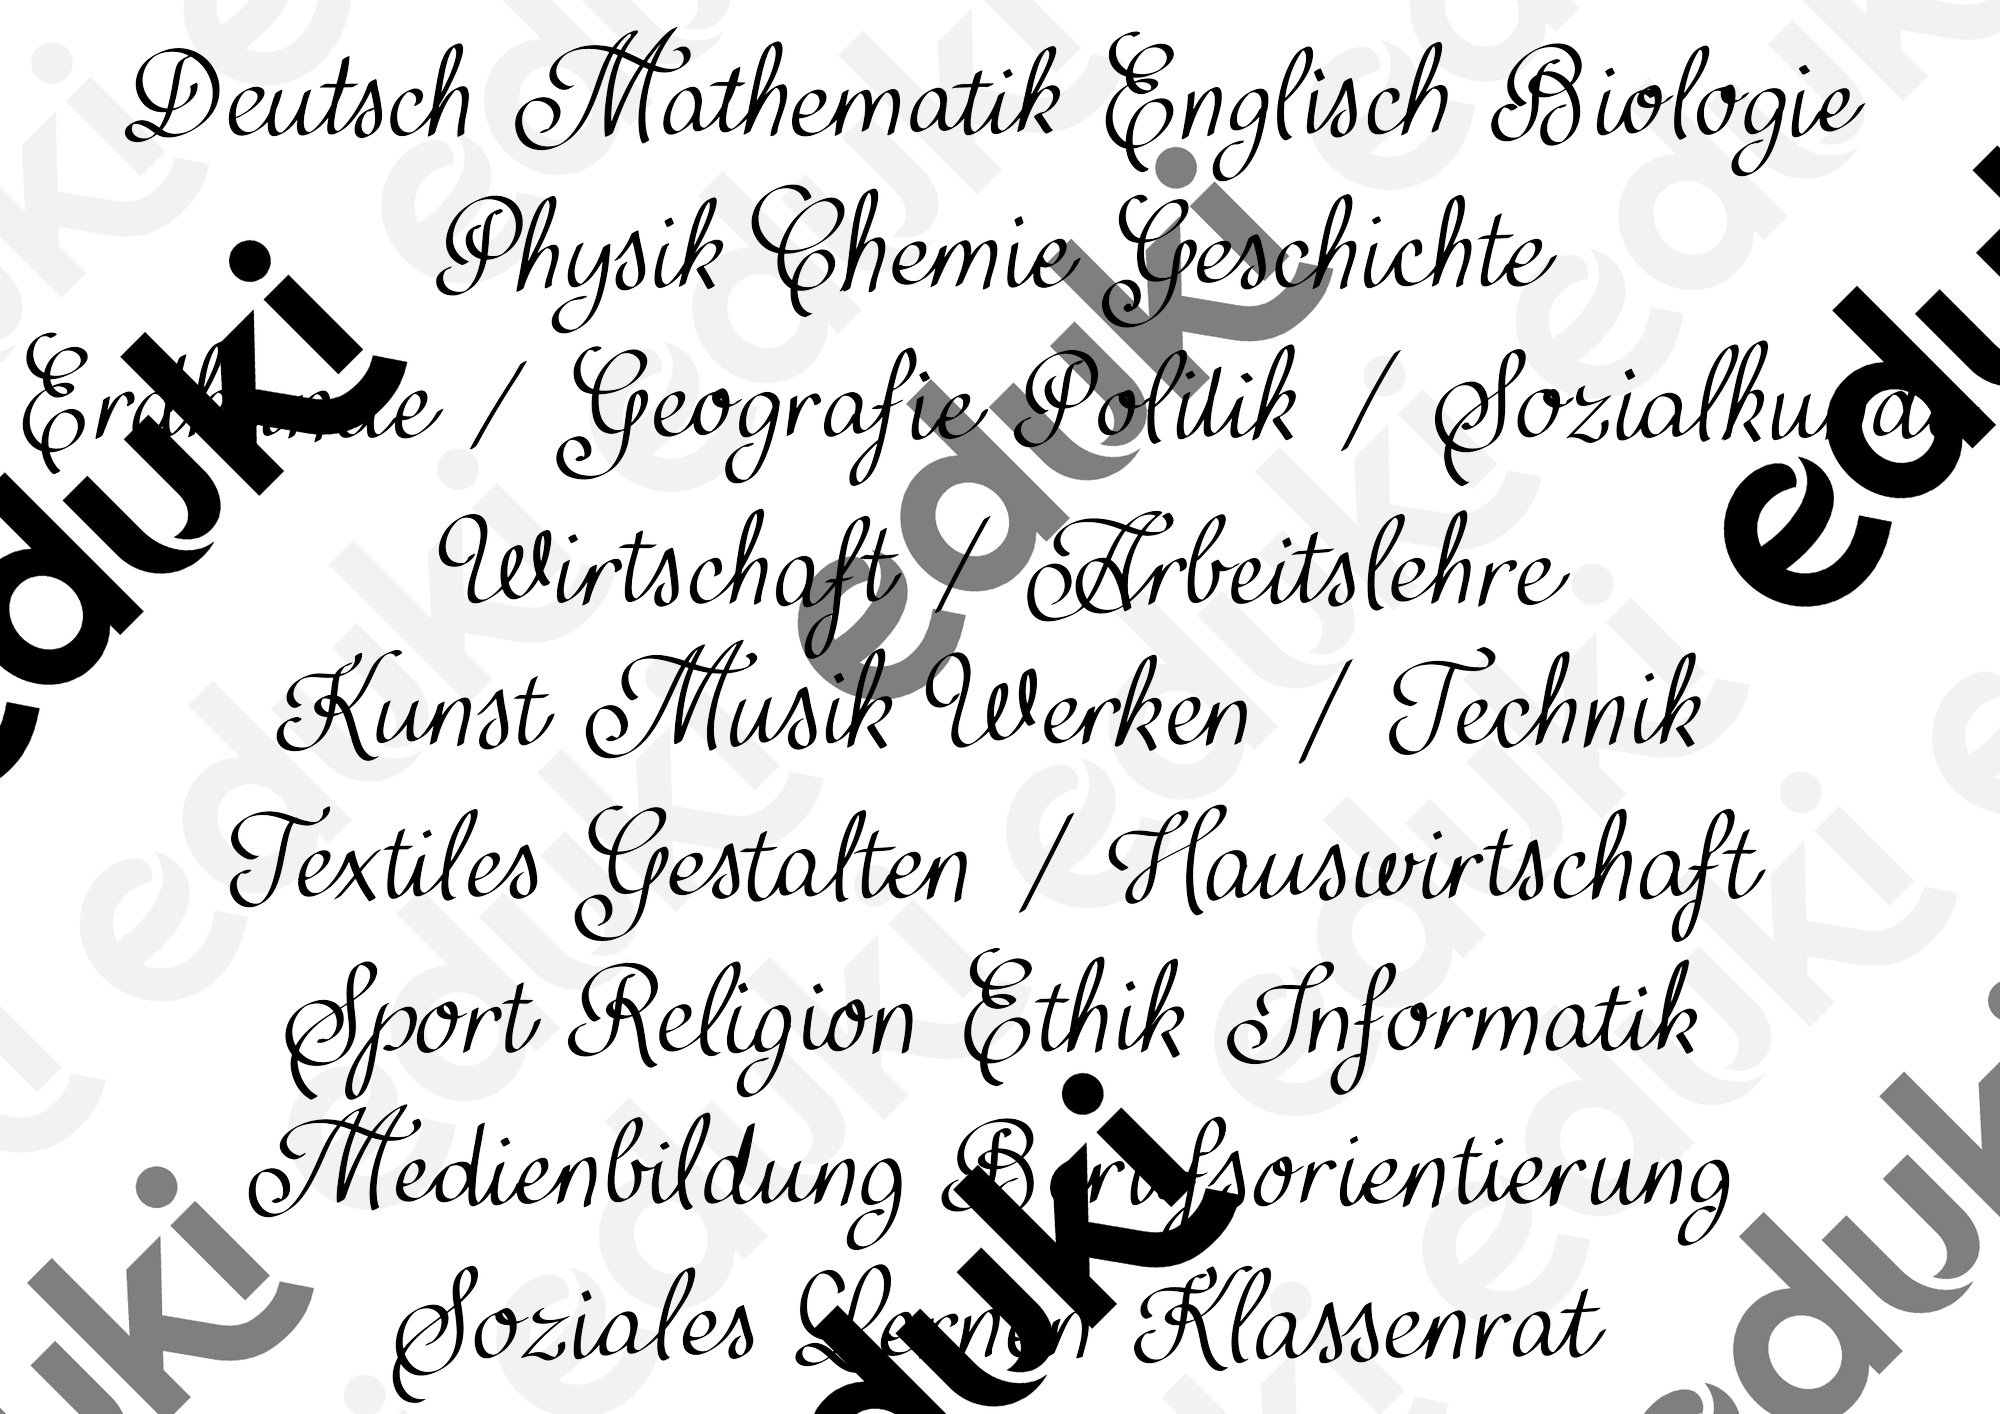 Deutsch Mathematik Englisch Biologie
Physik Chemie Geschichte
Erdkunde / Geografie Politik / Sozialkunde
Wirtschaft / Arbeitslehre
Kunst Musik Werken / Technik
Textiles Gestalten / Hauswirtschaft
Sport Religion Ethik Informatik
Medienbildung Berufsorientierung
Soziales Lernen Klassenrat
eduki
eduki
eduki
eduki